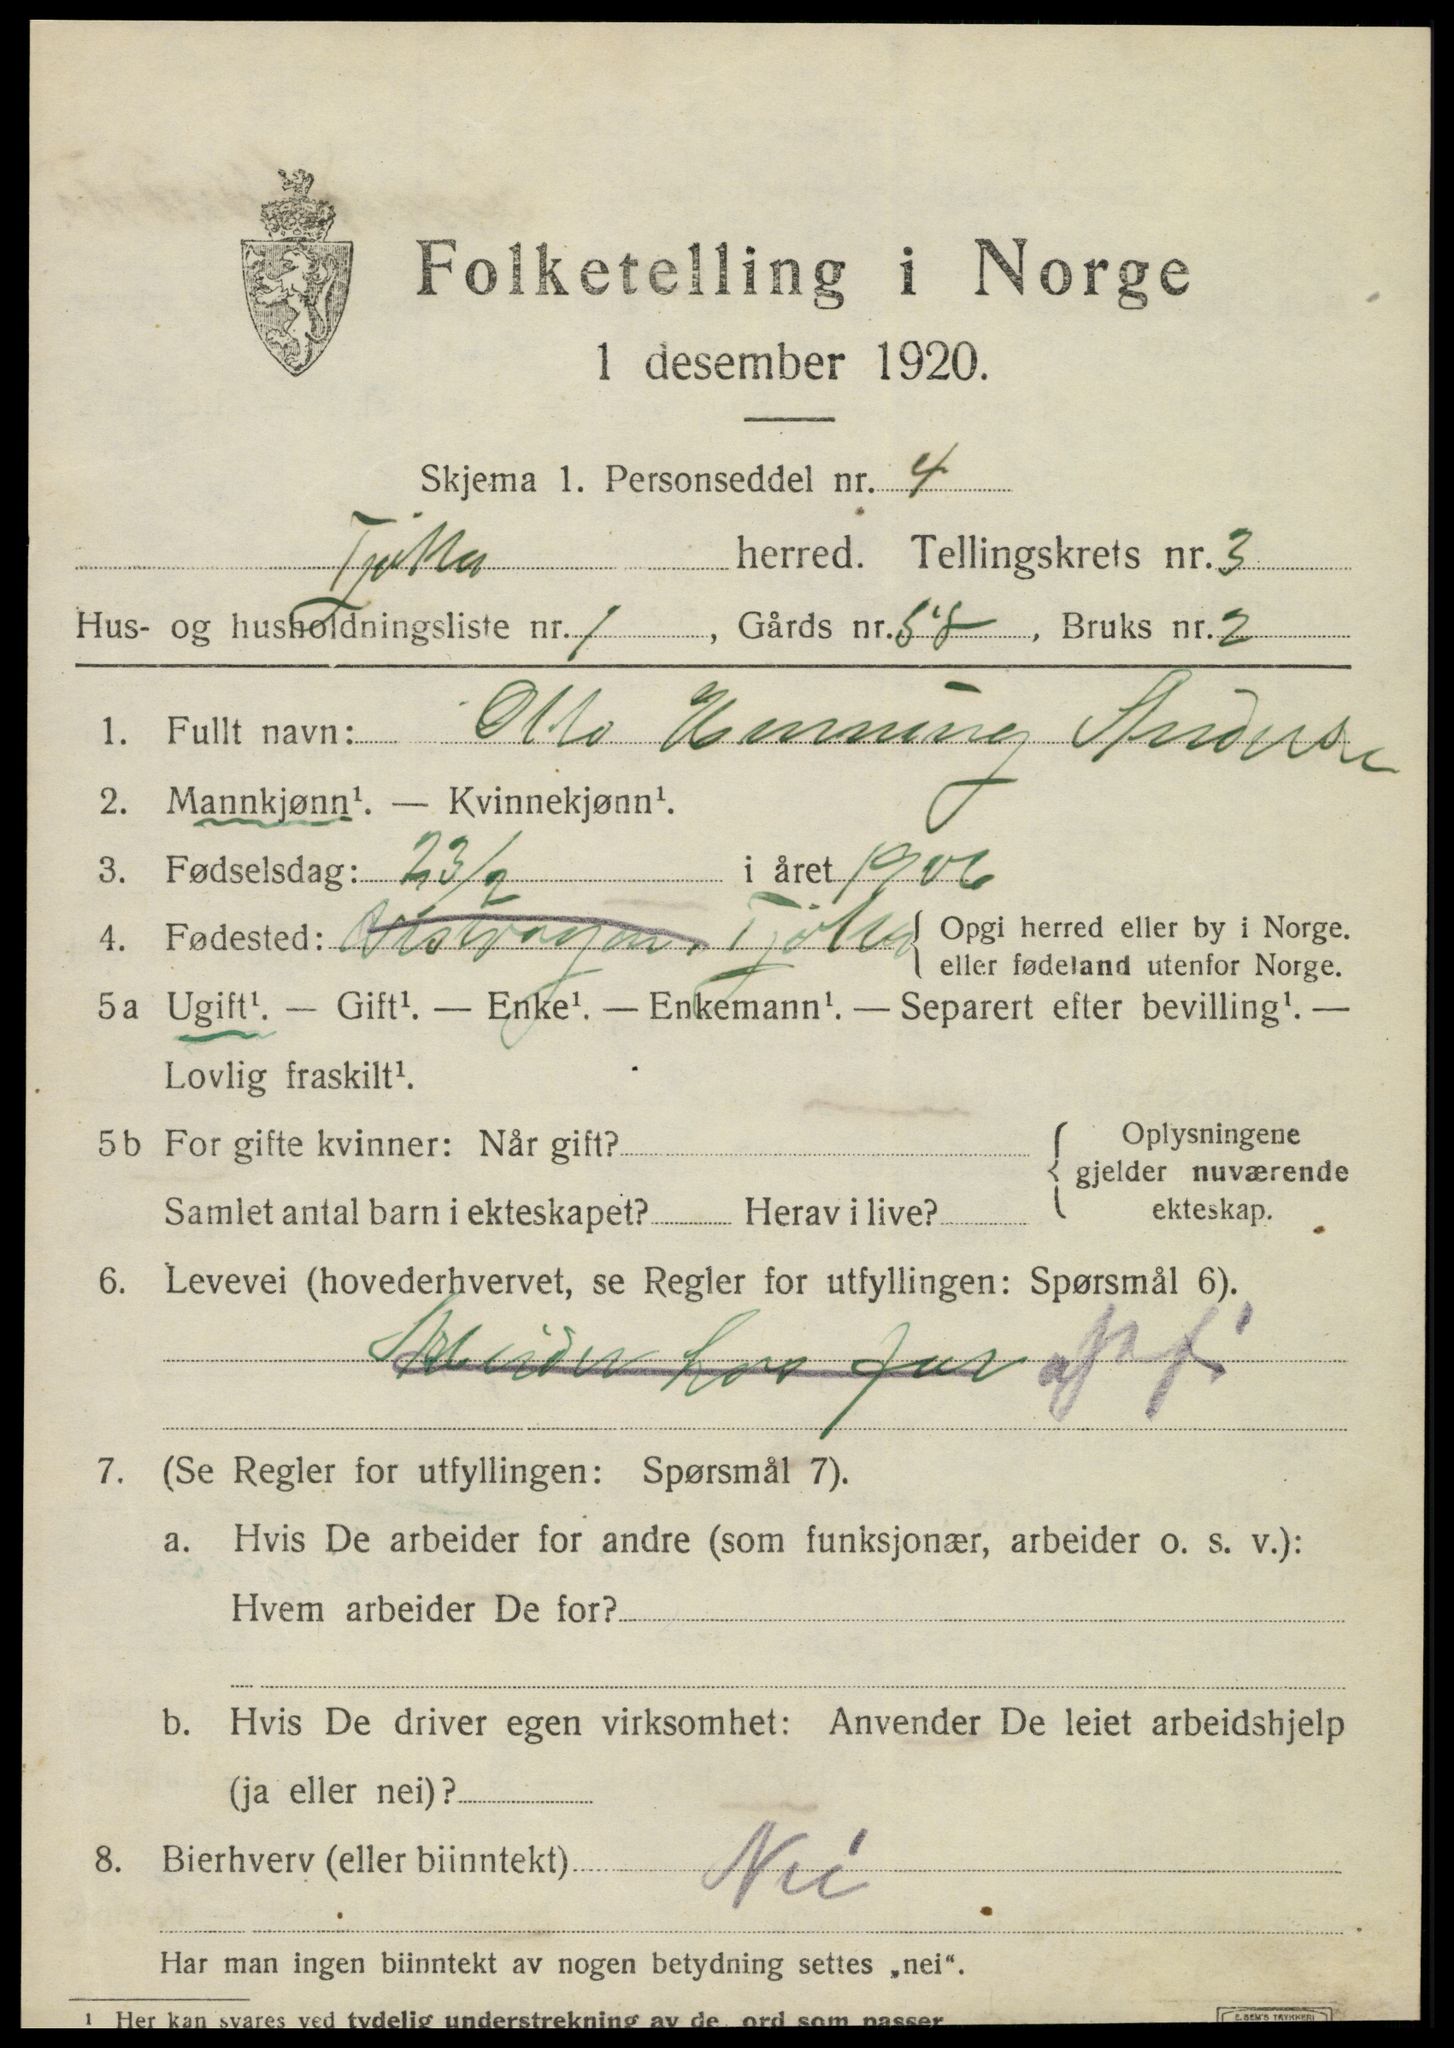 Folketelling i Norge
1 desember 1920.
Skjema 1. Personseddel nr. 4
Tjøtta herred. Tellingskrets nr. 3
Hus- og husholdningsliste nr. 1, Gårds nr. 58, Bruks nr. 2
1. Fullt navn: Otto Henning Anderse
2. Mannkjønn¹. — Kvinnekjønn¹.
3. Fødselsdag: 23/2 i året 1906
4. Fødested: Tjøtta { Opgi herred eller by i Norge.
eller fødeland utenfor Norge.
5a Ugift¹. — Gift¹. — Enke¹. — Enkemann¹. — Separert efter bevilling¹. —
Lovlig fraskilt¹.
5b For gifte kvinner: Når gift? { Oplysningene
gjelder nuværende
Samlet antal barn i ekteskapet? Herav i live? ekteskap.
6. Levevei (hovederhvervet, se Regler for utfyllingen: Spørsmål 6).
Arbeider hos far
7. (Se Regler for utfyllingen: Spørsmål 7).
a. Hvis De arbeider for andre (som funksjonær, arbeider o. s. v.):
Hvem arbeider De for?
b. Hvis De driver egen virksomhet: Anvender De leiet arbeidshjelp
(ja eller nei)?
8. Bierhverv (eller biinntekt) Nei
Har man ingen biinntekt av nogen betydning settes „nei“.
¹ Her kan svares ved tydelig understrekning av de ord som passer
E. SEM'S TRYKKERI